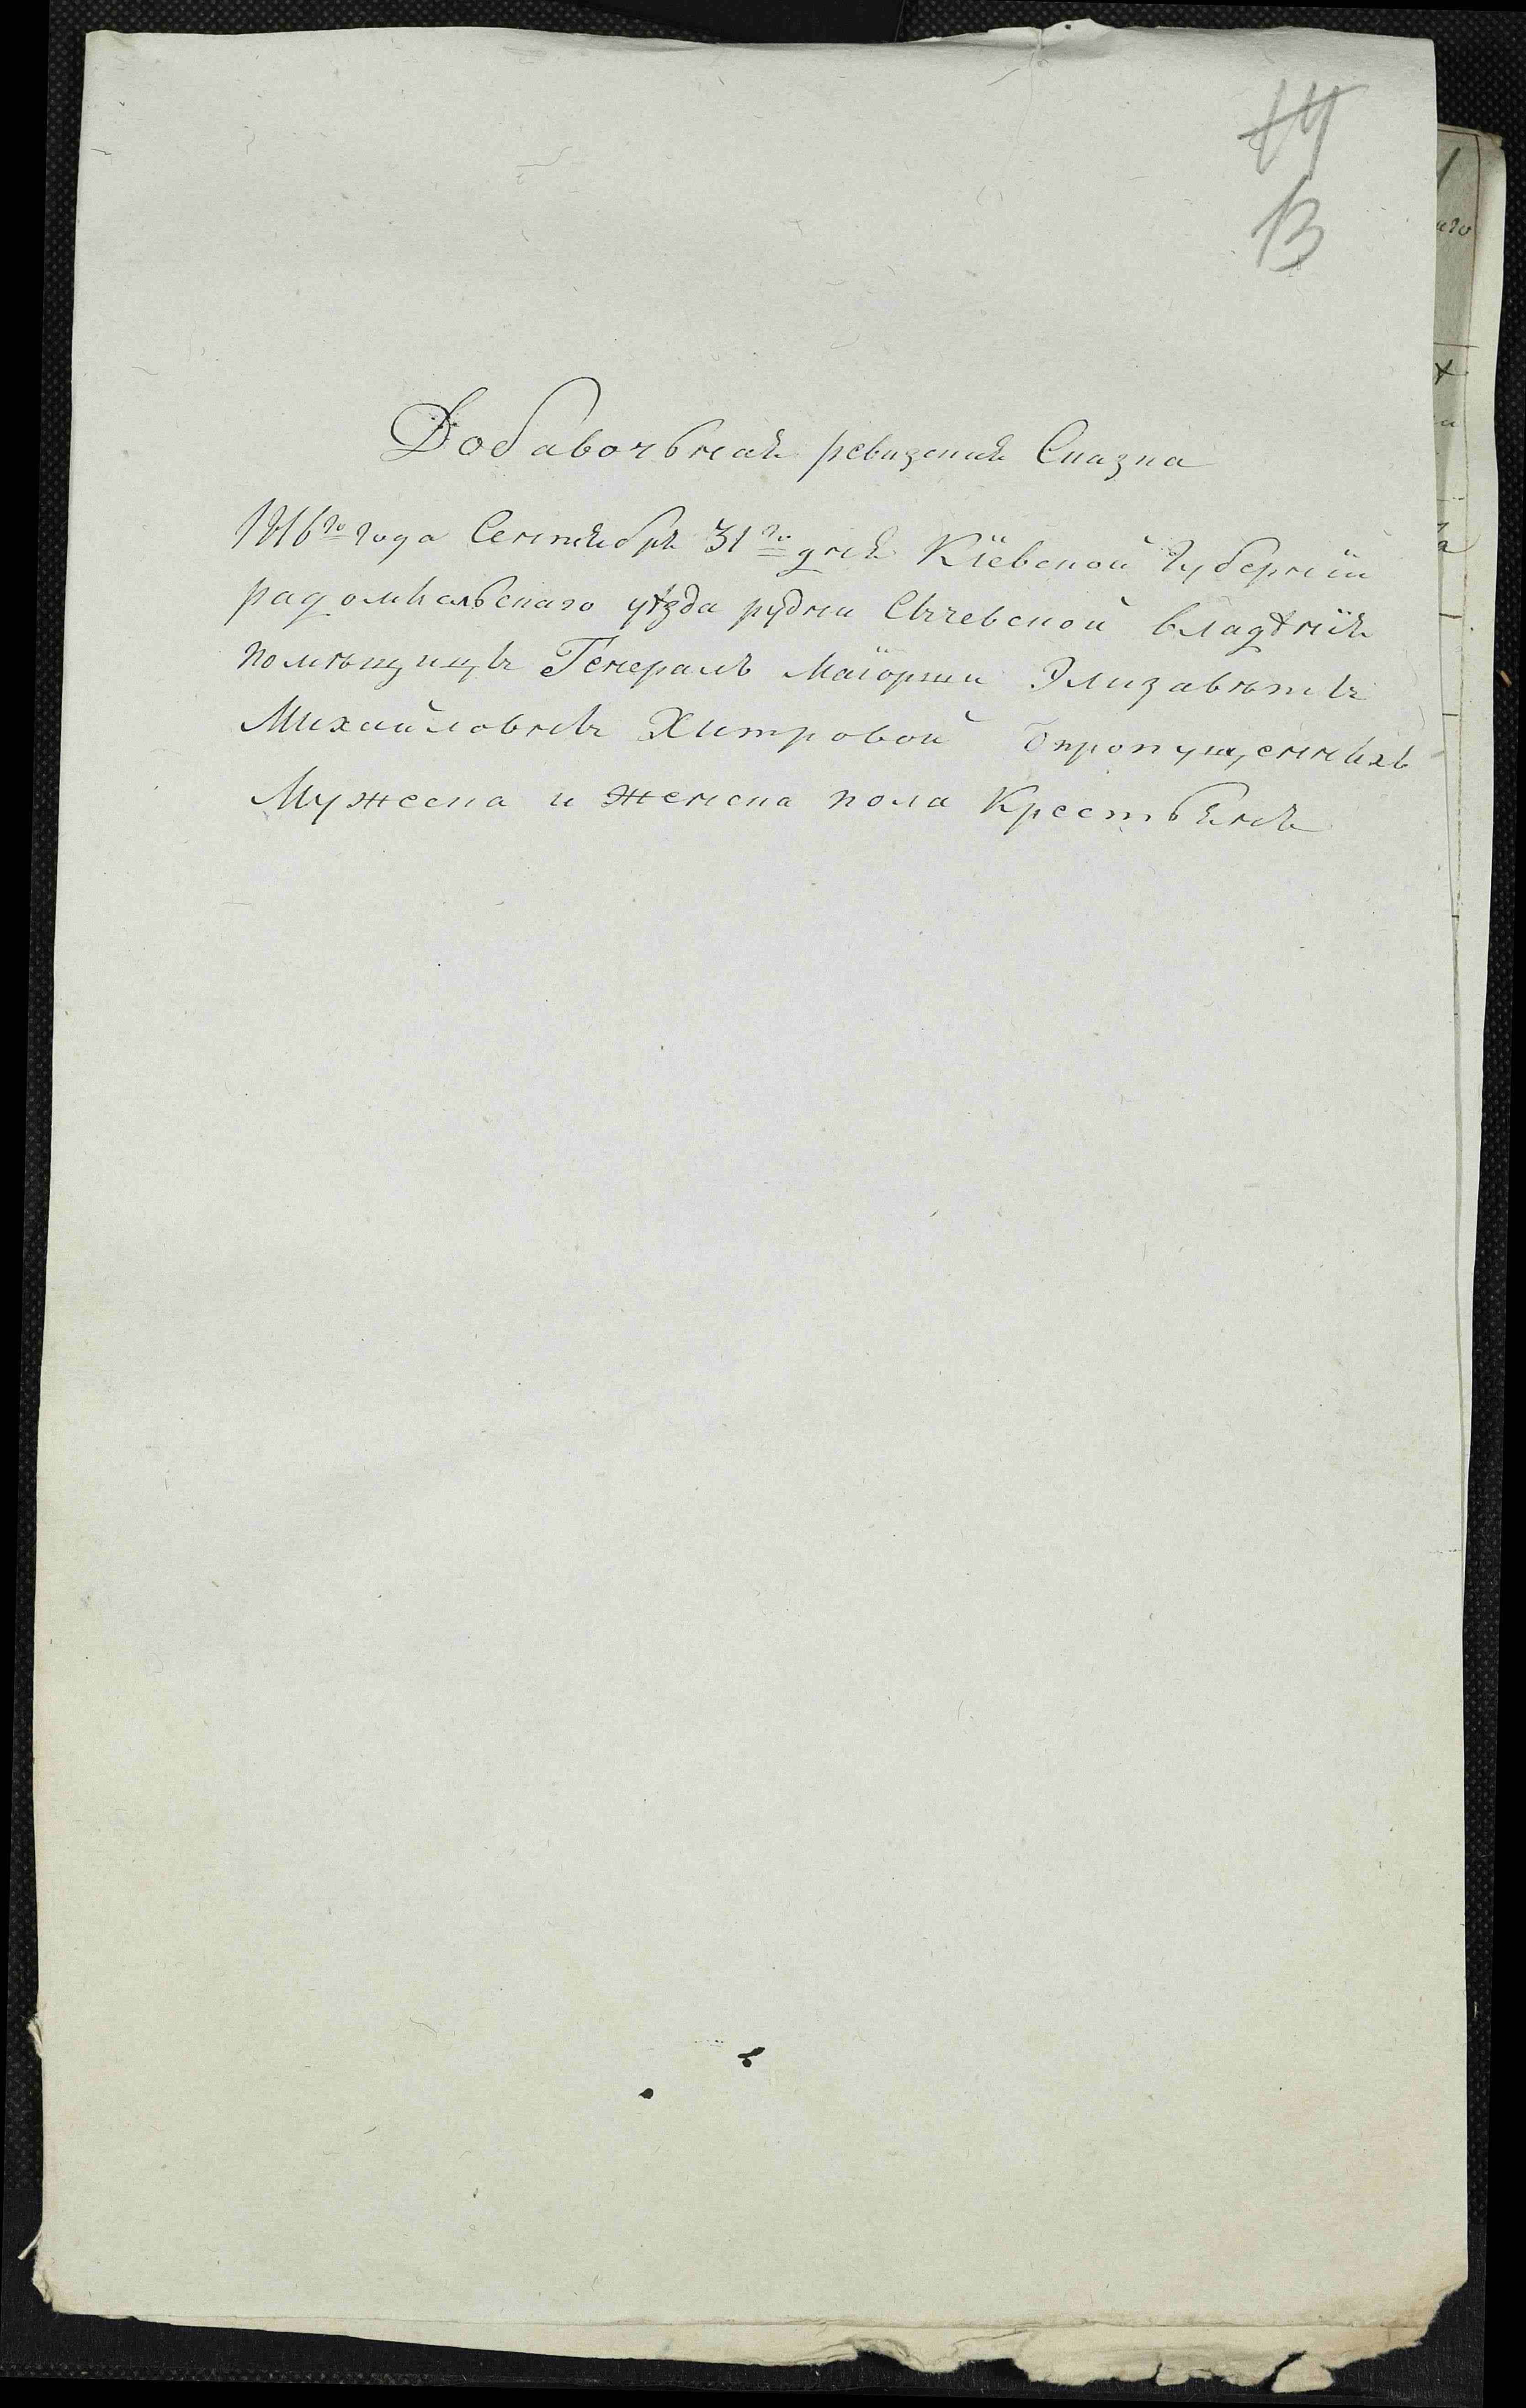 14
13
Добавочьная ревизская Сказка
1816го года Сентября 31го дня Кіевской Губерніи
радомысльскаго уѣзда рудни владѣнія
помѣщицы Генералъ Маіорши Элизаветы
Михайловны Хитровой Опропущенныхъ
Мужеска и Женска пола Крестьянъ